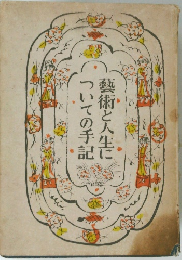 藝術と人生に
ついての手記